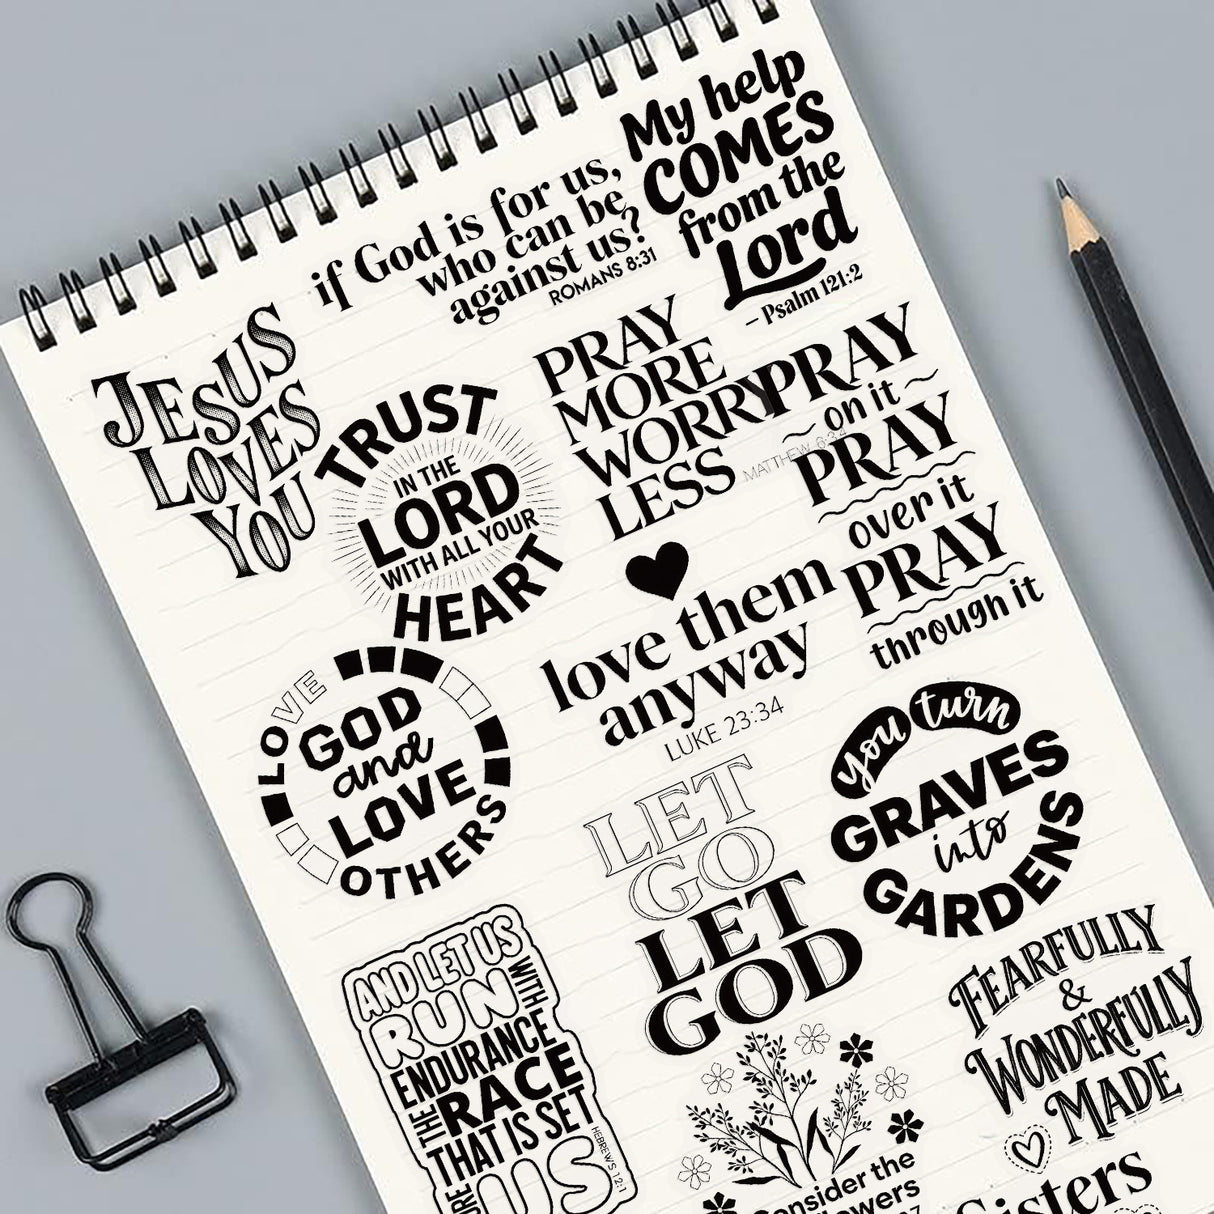 My help
COMES
from the
Lord
– Psalm 121:2
if God is for us,
who can be
against us?
ROMANS 8:31
JESUS
LOVES
YOU
TRUST
IN THE
LORD
WITH ALL YOUR
HEART
PRAY
MORE
WORRY
LESS
MATTHEW 6:34
PRAY
on it
PRAY
over it
PRAY
through it
love them
anyway
LUKE 23:34
LOVE
GOD
and
LOVE
OTHERS
you turn
GRAVES
into
GARDENS
LET
GO
LET
GOD
AND LET US
RUN
WITH
ENDURANCE
THE
RACE
THAT IS SET
US
HEBREWS 12:1
FEARFULLY
&
WONDERFULLY
MADE
Consider the
Sisters